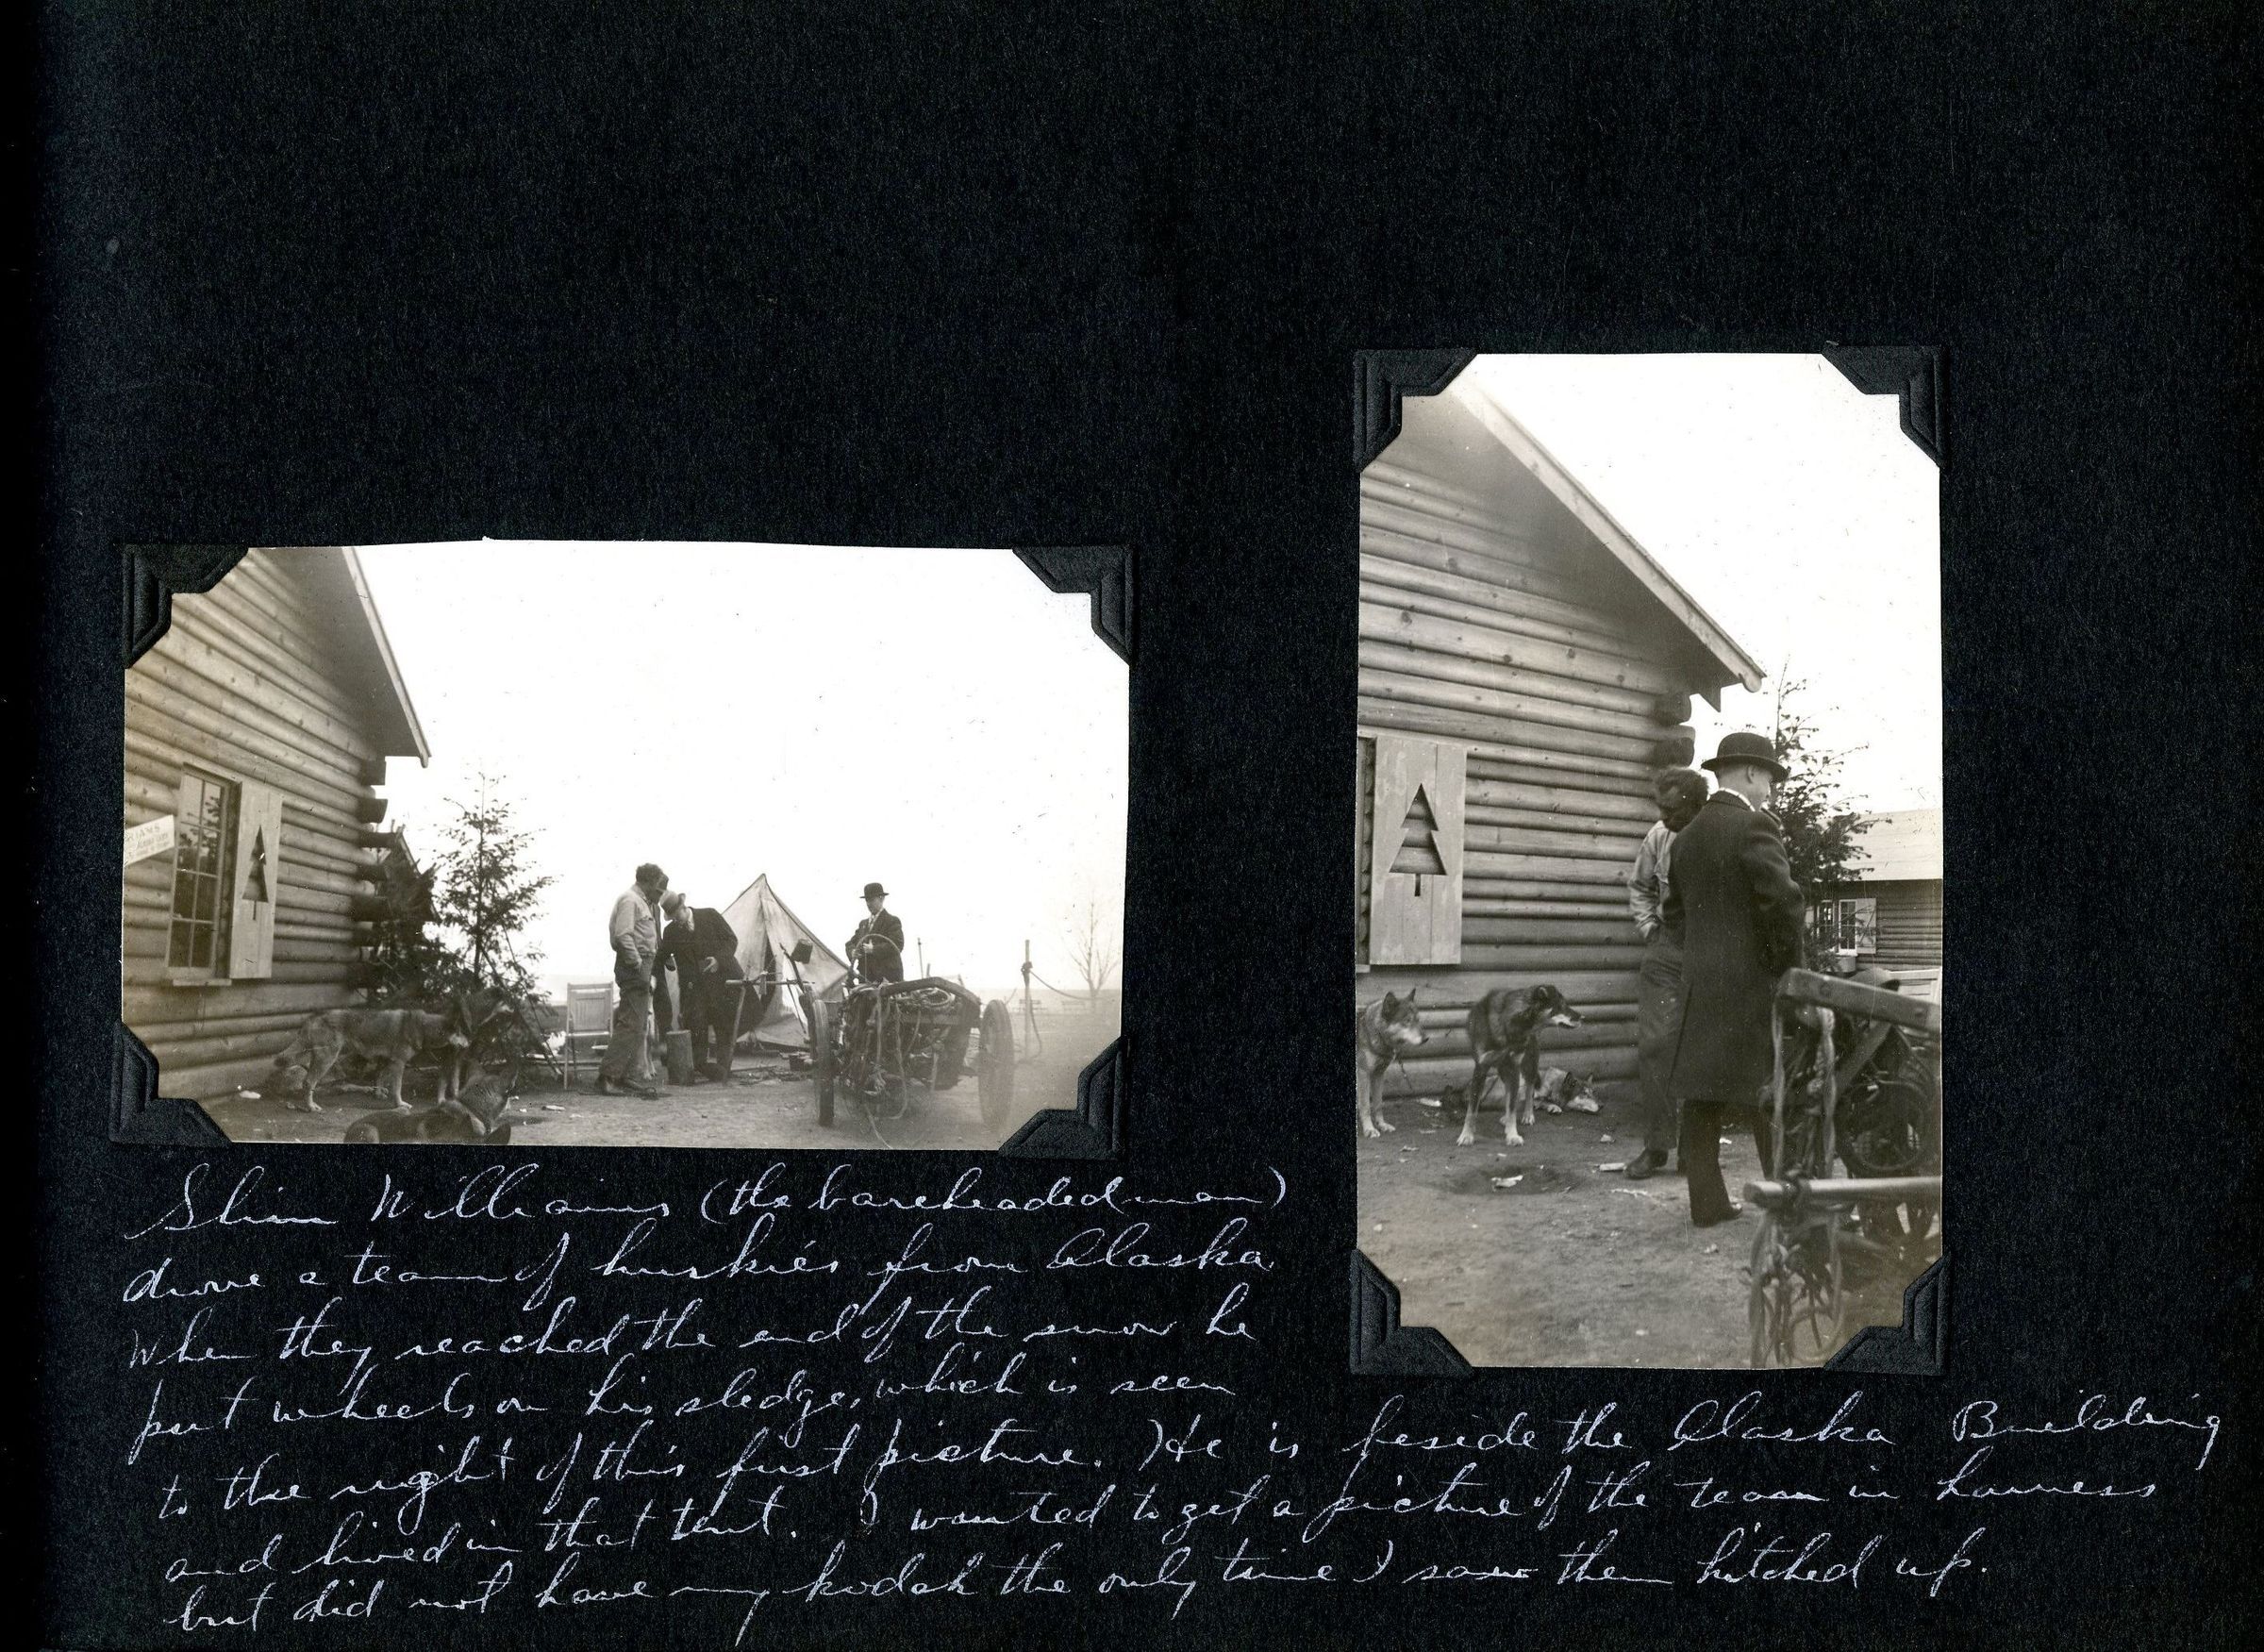 IAMS
Slim Williams (the bareheaded man)
drove a team of huskies from Alaska.
When they reached the end of the snow he
put wheels on his sledge, which is seen
to the right of this first picture. He is beside the Alaska Building
and lived in that tent. I wanted to get a picture of the team in harness
but did not have my kodak the only time I saw them hitched up.